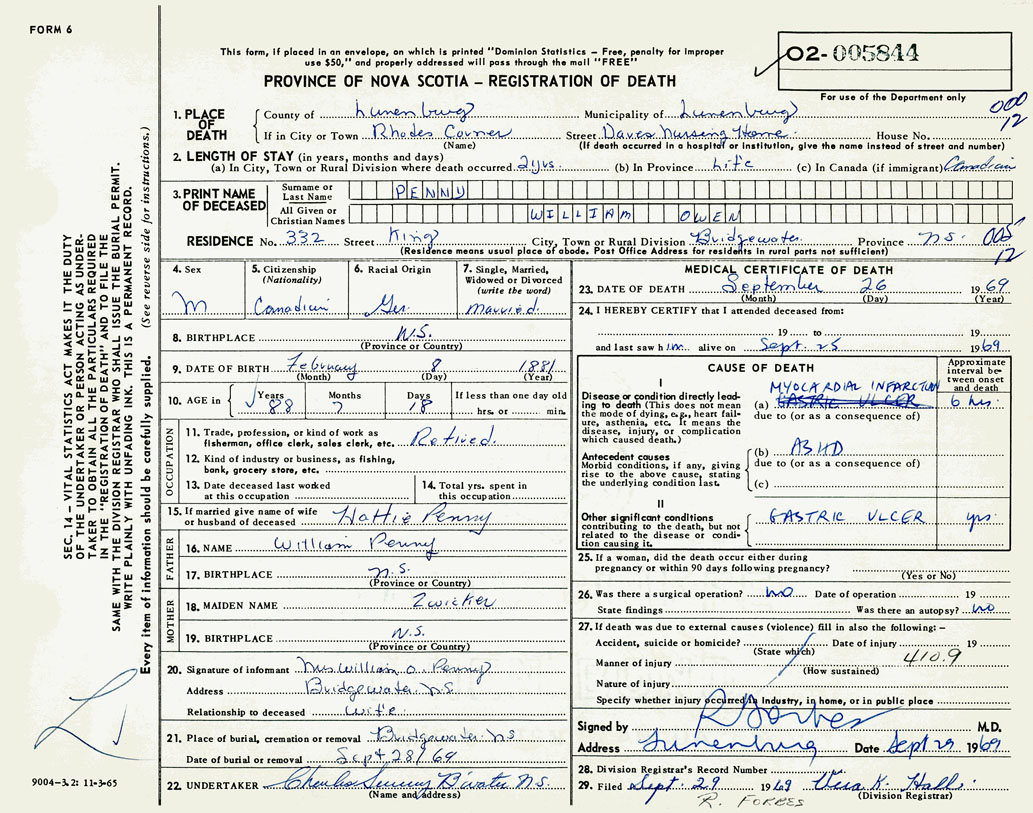 FORM 6
This form, if placed in an envelope, on which is printed "Dominion Statistics – Free, penalty for improper
use $50," and properly addressed will pass through the mail "FREE"
PROVINCE OF NOVA SCOTIA – REGISTRATION OF DEATH
02-005844
For use of the Department only
000
12
1. PLACE OF DEATH
County of Lunenburg Municipality of Lunenburg
If in City or Town Rhodes Corner Street Daves Nursing Home House No.
(Name) (If death occurred in a hospital or institution, give the name instead of street and number)
2. LENGTH OF STAY (in years, months and days)
(a) In City, Town or Rural Division where death occurred 2 yrs. (b) In Province Life (c) In Canada (if immigrant) Canadian
3. PRINT NAME OF DECEASED
Surname or Last Name PENNY
All Given or Christian Names WILLIAM OWEN
RESIDENCE No. 332 Street King City, Town or Rural Division Bridgewater Province N.S. 005
12
(Residence means usual place of abode. Post Office Address for residents in rural parts not sufficient)
4. Sex
M
5. Citizenship
(Nationality)
Canadian
6. Racial Origin
Ger.
7. Single, Married,
Widowed or Divorced
(write the word)
Married.
8. BIRTHPLACE N.S.
(Province or Country)
9. DATE OF BIRTH February 8 1881
(Month) (Day) (Year)
10. AGE in Years Months Days If less than one day old
88 7 18 hrs. or min.
OCCUPATION
11. Trade, profession, or kind of work as
fisherman, office clerk, sales clerk, etc. Retired.
12. Kind of industry or business, as fishing,
bank, grocery store, etc.
13. Date deceased last worked
at this occupation
14. Total yrs. spent in
this occupation
15. If married give name of wife
or husband of deceased Hattie Penny
FATHER
16. NAME William Penny
17. BIRTHPLACE N.S.
(Province or Country)
MOTHER
18. MAIDEN NAME Zwicker
19. BIRTHPLACE N.S.
(Province or Country)
20. Signature of informant Mrs. William O. Penny
Address Bridgewater N.S.
Relationship to deceased wife
21. Place of burial, cremation or removal Bridgewater N.S
Date of burial or removal Sept 28/69
22. UNDERTAKER Charles B'water N.S.
(Name and Address)
MEDICAL CERTIFICATE OF DEATH
23. DATE OF DEATH September 26 1969
(Month) (Day) (Year)
24. I HEREBY CERTIFY that I attended deceased from:
19 to 19
and last saw him alive on Sept. 25 1969
CAUSE OF DEATH
Approximate
interval be-
tween onset
and death
I
Disease or condition directly lead-
ing to death (This does not mean
the mode of dying, e.g., heart fail-
ure, asthenia, etc. It means the
disease, injury, or complication
which caused death.)
MYOCARDIAL INFARCTION
(a) GASTRIC ULCER 6 hrs.
due to (or as a consequence of)
Antecedent causes
Morbid conditions, if any, giving
rise to the above cause, stating
the underlying condition last.
(b) ASHD
due to (or as a consequence of)
(c)
II
Other significant conditions
contributing to the death, but not
related to the disease or condi-
tion causing it.
GASTRIC ULCER yrs
25. If a woman, did the death occur either during
pregnancy or within 90 days following pregnancy?
(Yes or No)
26. Was there a surgical operation? no Date of operation 19
State findings Was there an autopsy? no
27. If death was due to external causes (violence) fill in also the following: –
Accident, suicide or homicide? Date of injury 19
(State which)
Manner of injury 410.9
(How sustained)
Nature of injury
Specify whether injury occurred in industry, in home, or in public place
Signed by R Forbes M.D.
Address Lunenburg Date Sept 29 1969
28. Division Registrar's Record Number
29. Filed Sept. 29 1969 Vera K. Hall
(Division Registrar)
R. FORBES
SEC. 14 – VITAL STATISTICS ACT MAKES IT THE DUTY
OF THE UNDERTAKER OR PERSON ACTING AS UNDER-
TAKER TO OBTAIN ALL THE PARTICULARS REQUIRED
IN THE "REGISTRATION OF DEATH" AND TO FILE THE
SAME WITH THE DIVISION REGISTRAR WHO SHALL ISSUE THE BURIAL PERMIT.
WRITE PLAINLY WITH UNFADING INK. THIS IS A PERMANENT RECORD.
Every item of information should be carefully supplied. (See reverse side for instructions.)
9004-3.2: 11-3-65